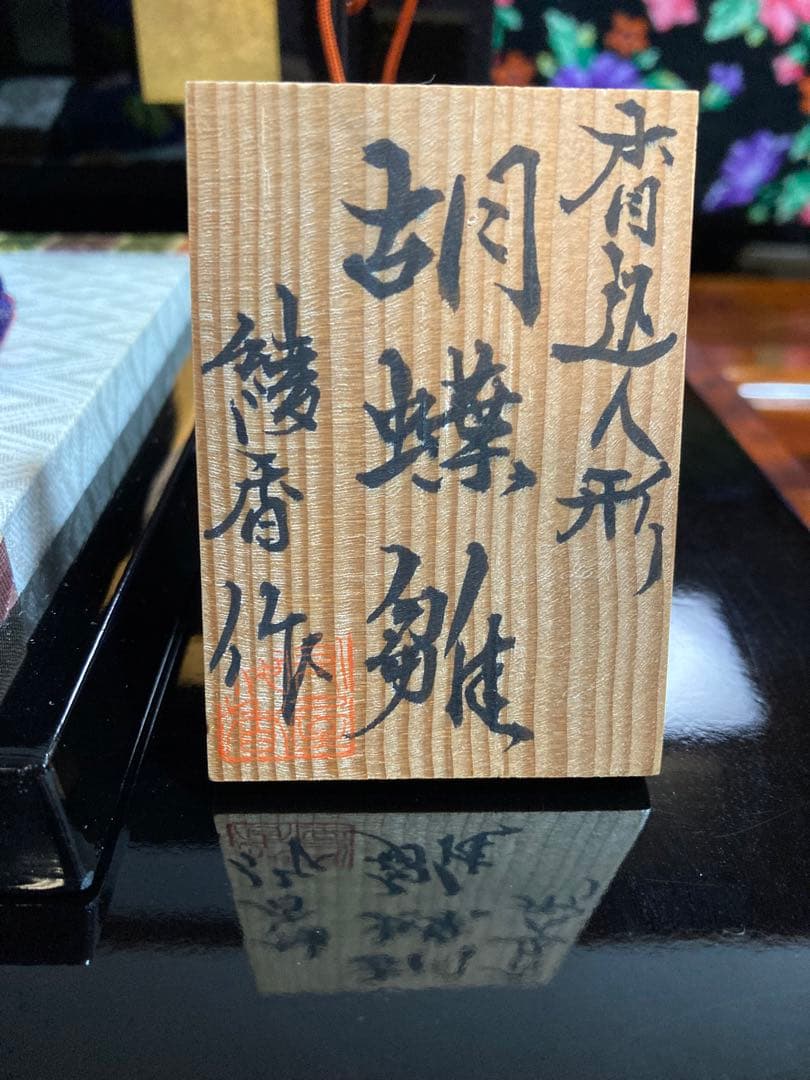 木目込人形
胡蝶雛
綾香作